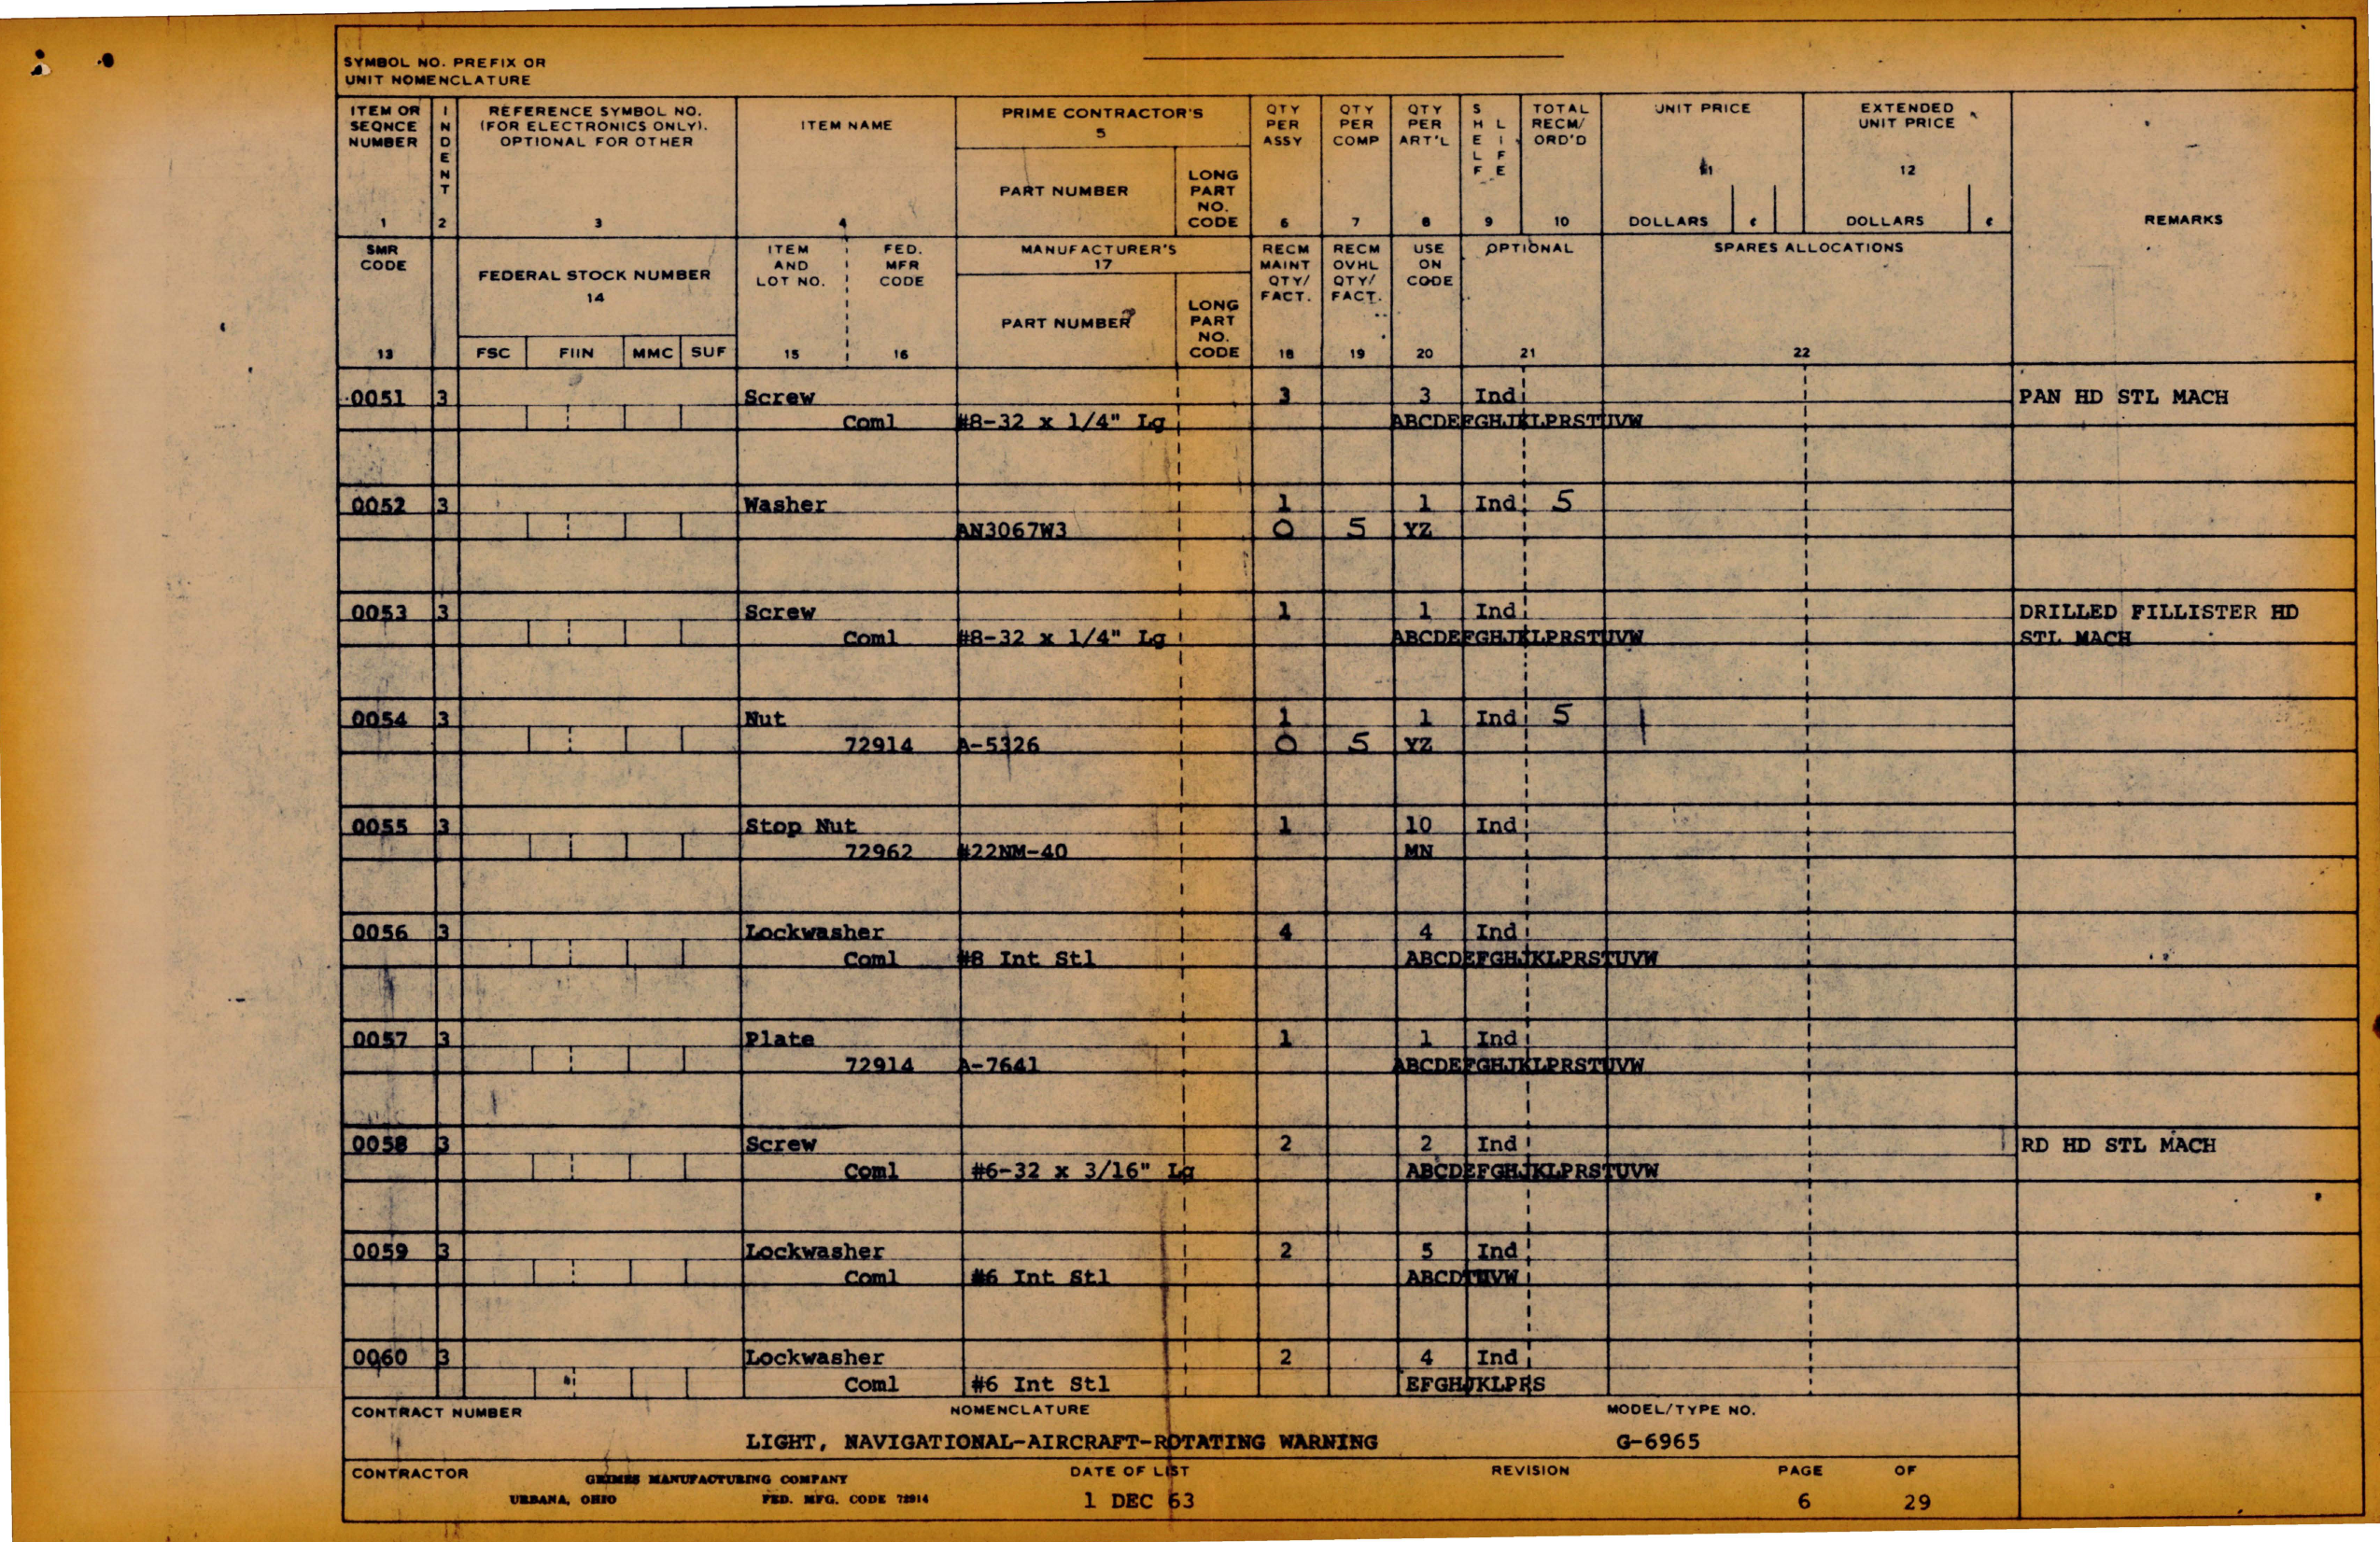 SYMBOL NO. PREFIX OR
UNIT NOMENCLATURE
ITEM OR SEQNCE NUMBER 1
INDENT 2
REFERENCE SYMBOL NO. (FOR ELECTRONICS ONLY). OPTIONAL FOR OTHER 3
ITEM NAME 4
PRIME CONTRACTOR'S 5
PART NUMBER
LONG PART NO. CODE
QTY PER ASSY 6
QTY PER COMP 7
QTY PER ART'L 8
SHELF LIFE 9
TOTAL RECM/ ORD'D 10
UNIT PRICE 11
DOLLARS ¢
EXTENDED UNIT PRICE 12
DOLLARS ¢
REMARKS
SMR CODE 13
FEDERAL STOCK NUMBER 14
FSC FIIN MMC SUF
ITEM AND LOT NO. 15
FED. MFR CODE 16
MANUFACTURER'S 17
PART NUMBER
LONG PART NO. CODE
RECM MAINT QTY/ FACT. 18
RECM OVHL QTY/ FACT. 19
USE ON CODE 20
OPTIONAL 21
SPARES ALLOCATIONS 22
0051 3 Screw 3 3 Ind PAN HD STL MACH
Coml #8-32 x 1/4" Lg ABCDEFGHJKLPRSTUVW
0052 3 Washer 1 1 Ind 5
AN3067W3 0 5 YZ
0053 3 Screw 1 1 Ind DRILLED FILLISTER HD
Coml #8-32 x 1/4" Lg ABCDEFGHJKLPRSTUVW STL MACH
0054 3 Nut 1 1 Ind 5
72914 A-5326 0 5 YZ
0055 3 Stop Nut 1 10 Ind
72962 #22NM-40 MN
0056 3 Lockwasher 4 4 Ind
Coml #8 Int Stl ABCDEFGHJKLPRSTUVW
0057 3 Plate 1 1 Ind
72914 A-7641 ABCDEFGHJKLPRSTUVW
0058 3 Screw 2 2 Ind RD HD STL MACH
Coml #6-32 x 3/16" Lg ABCDEFGHJKLPRSTUVW
0059 3 Lockwasher 2 5 Ind
Coml #6 Int Stl ABCDTUVW
0060 3 Lockwasher 2 4 Ind
Coml #6 Int Stl EFGHJKLPRS
CONTRACT NUMBER NOMENCLATURE MODEL/TYPE NO.
LIGHT, NAVIGATIONAL-AIRCRAFT-ROTATING WARNING G-6965
CONTRACTOR GRIMES MANUFACTURING COMPANY DATE OF LIST REVISION PAGE OF
URBANA, OHIO FED. MFG. CODE 72914 1 DEC 63 6 29